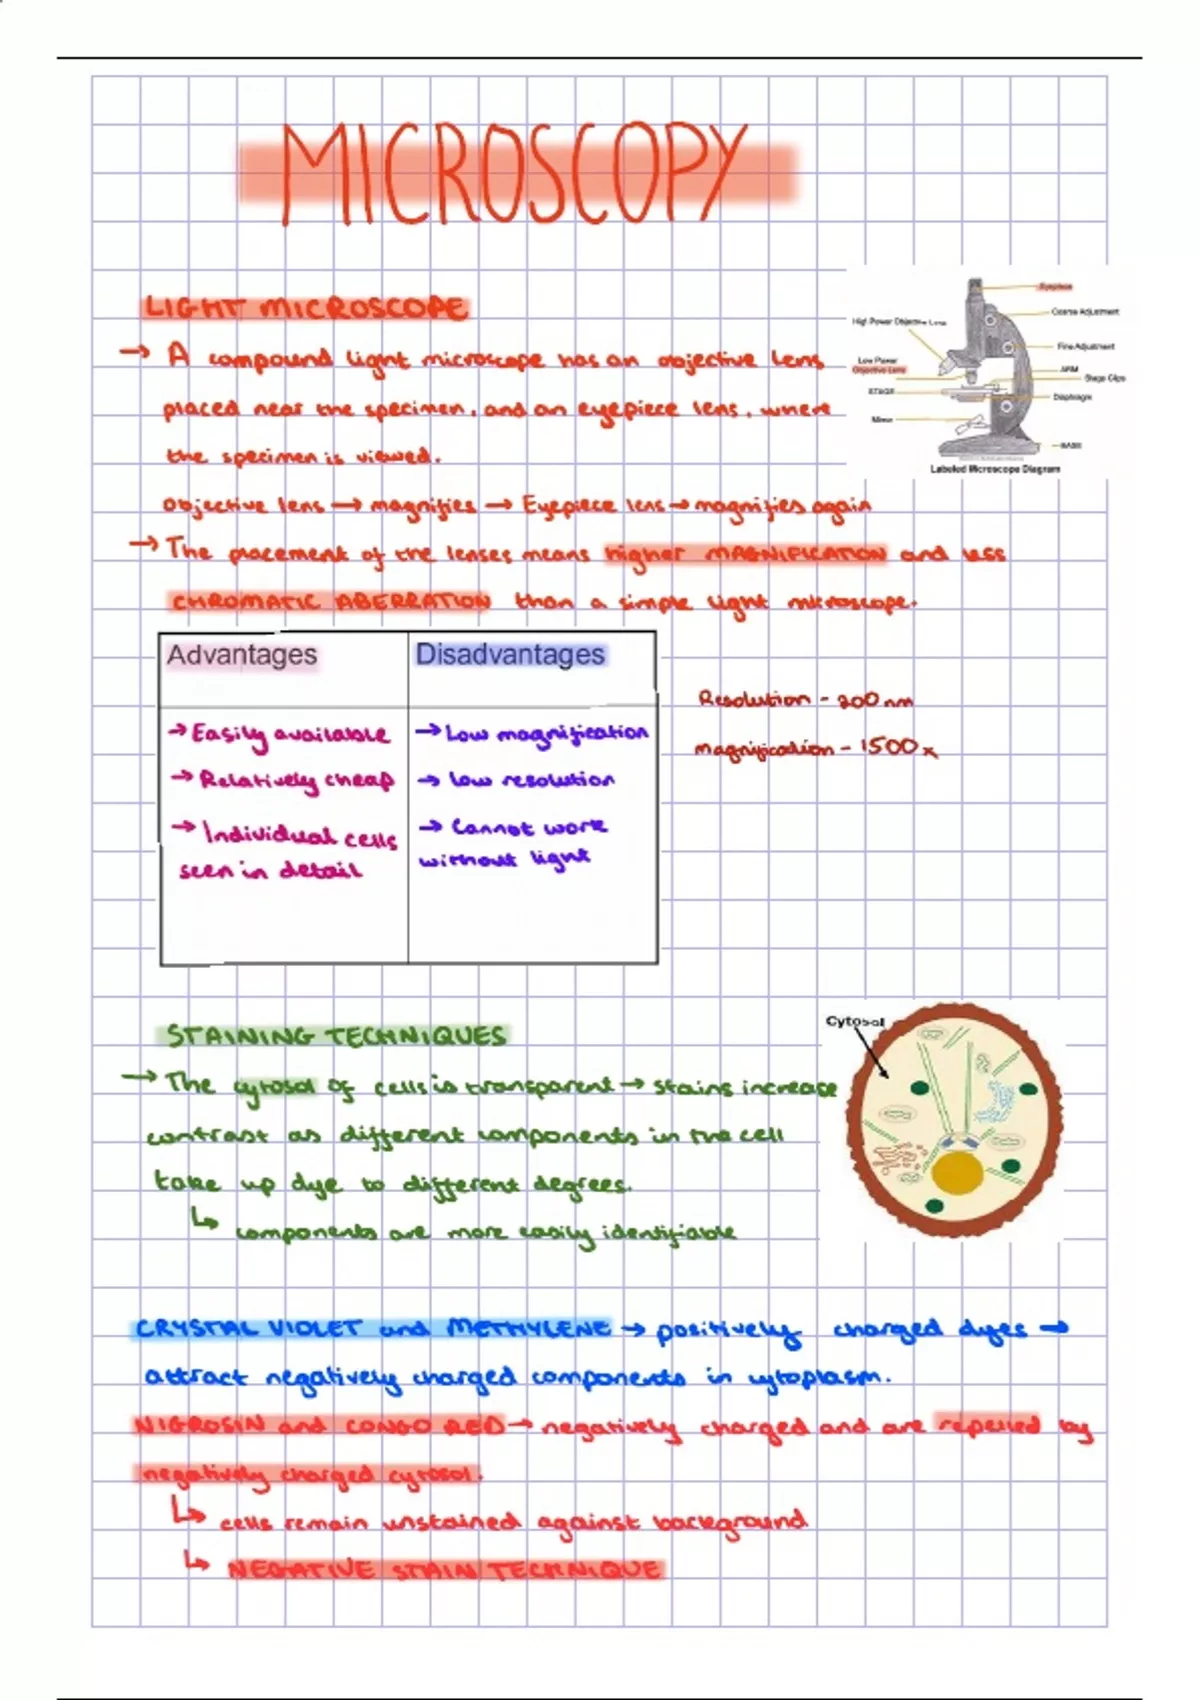 MICROSCOPY
LIGHT MICROSCOPE
→ A compound light microscope has an objective lens
placed near the specimen, and an eyepiece lens, where
the specimen is viewed.
Objective lens → magnifies → Eyepiece lens → magnifies again
→ The placement of the lenses means higher MAGNIFICATION and less
CHROMATIC ABERRATION than a simple light microscope.
Eyepiece
Coarse Adjustment
High Power Objective Lens
Fine Adjustment
Low Power
Objective Lens
ARM
Stage Clips
STAGE
Diaphragm
Mirror
BASE
Labeled Microscope Diagram
Advantages
→ Easily available
→ Relatively cheap
→ Individual cells
seen in detail
Disadvantages
→ Low magnification
→ low resolution
→ Cannot work
without light
Resolution - 200nm
magnification - 1500x
STAINING TECHNIQUES
→ The cytosol of cells is transparent → stains increase
contrast as different components in the cell
take up dye to different degrees.
↳ components are more easily identifiable
Cytosol
CRYSTAL VIOLET and METHYLENE → positively charged dyes →
attract negatively charged components in cytoplasm.
NIGROSIN and CONGO RED → negatively charged and are repelled by
negatively charged cytosol.
↳ cells remain unstained against background
↳ NEGATIVE STAIN TECHNIQUE